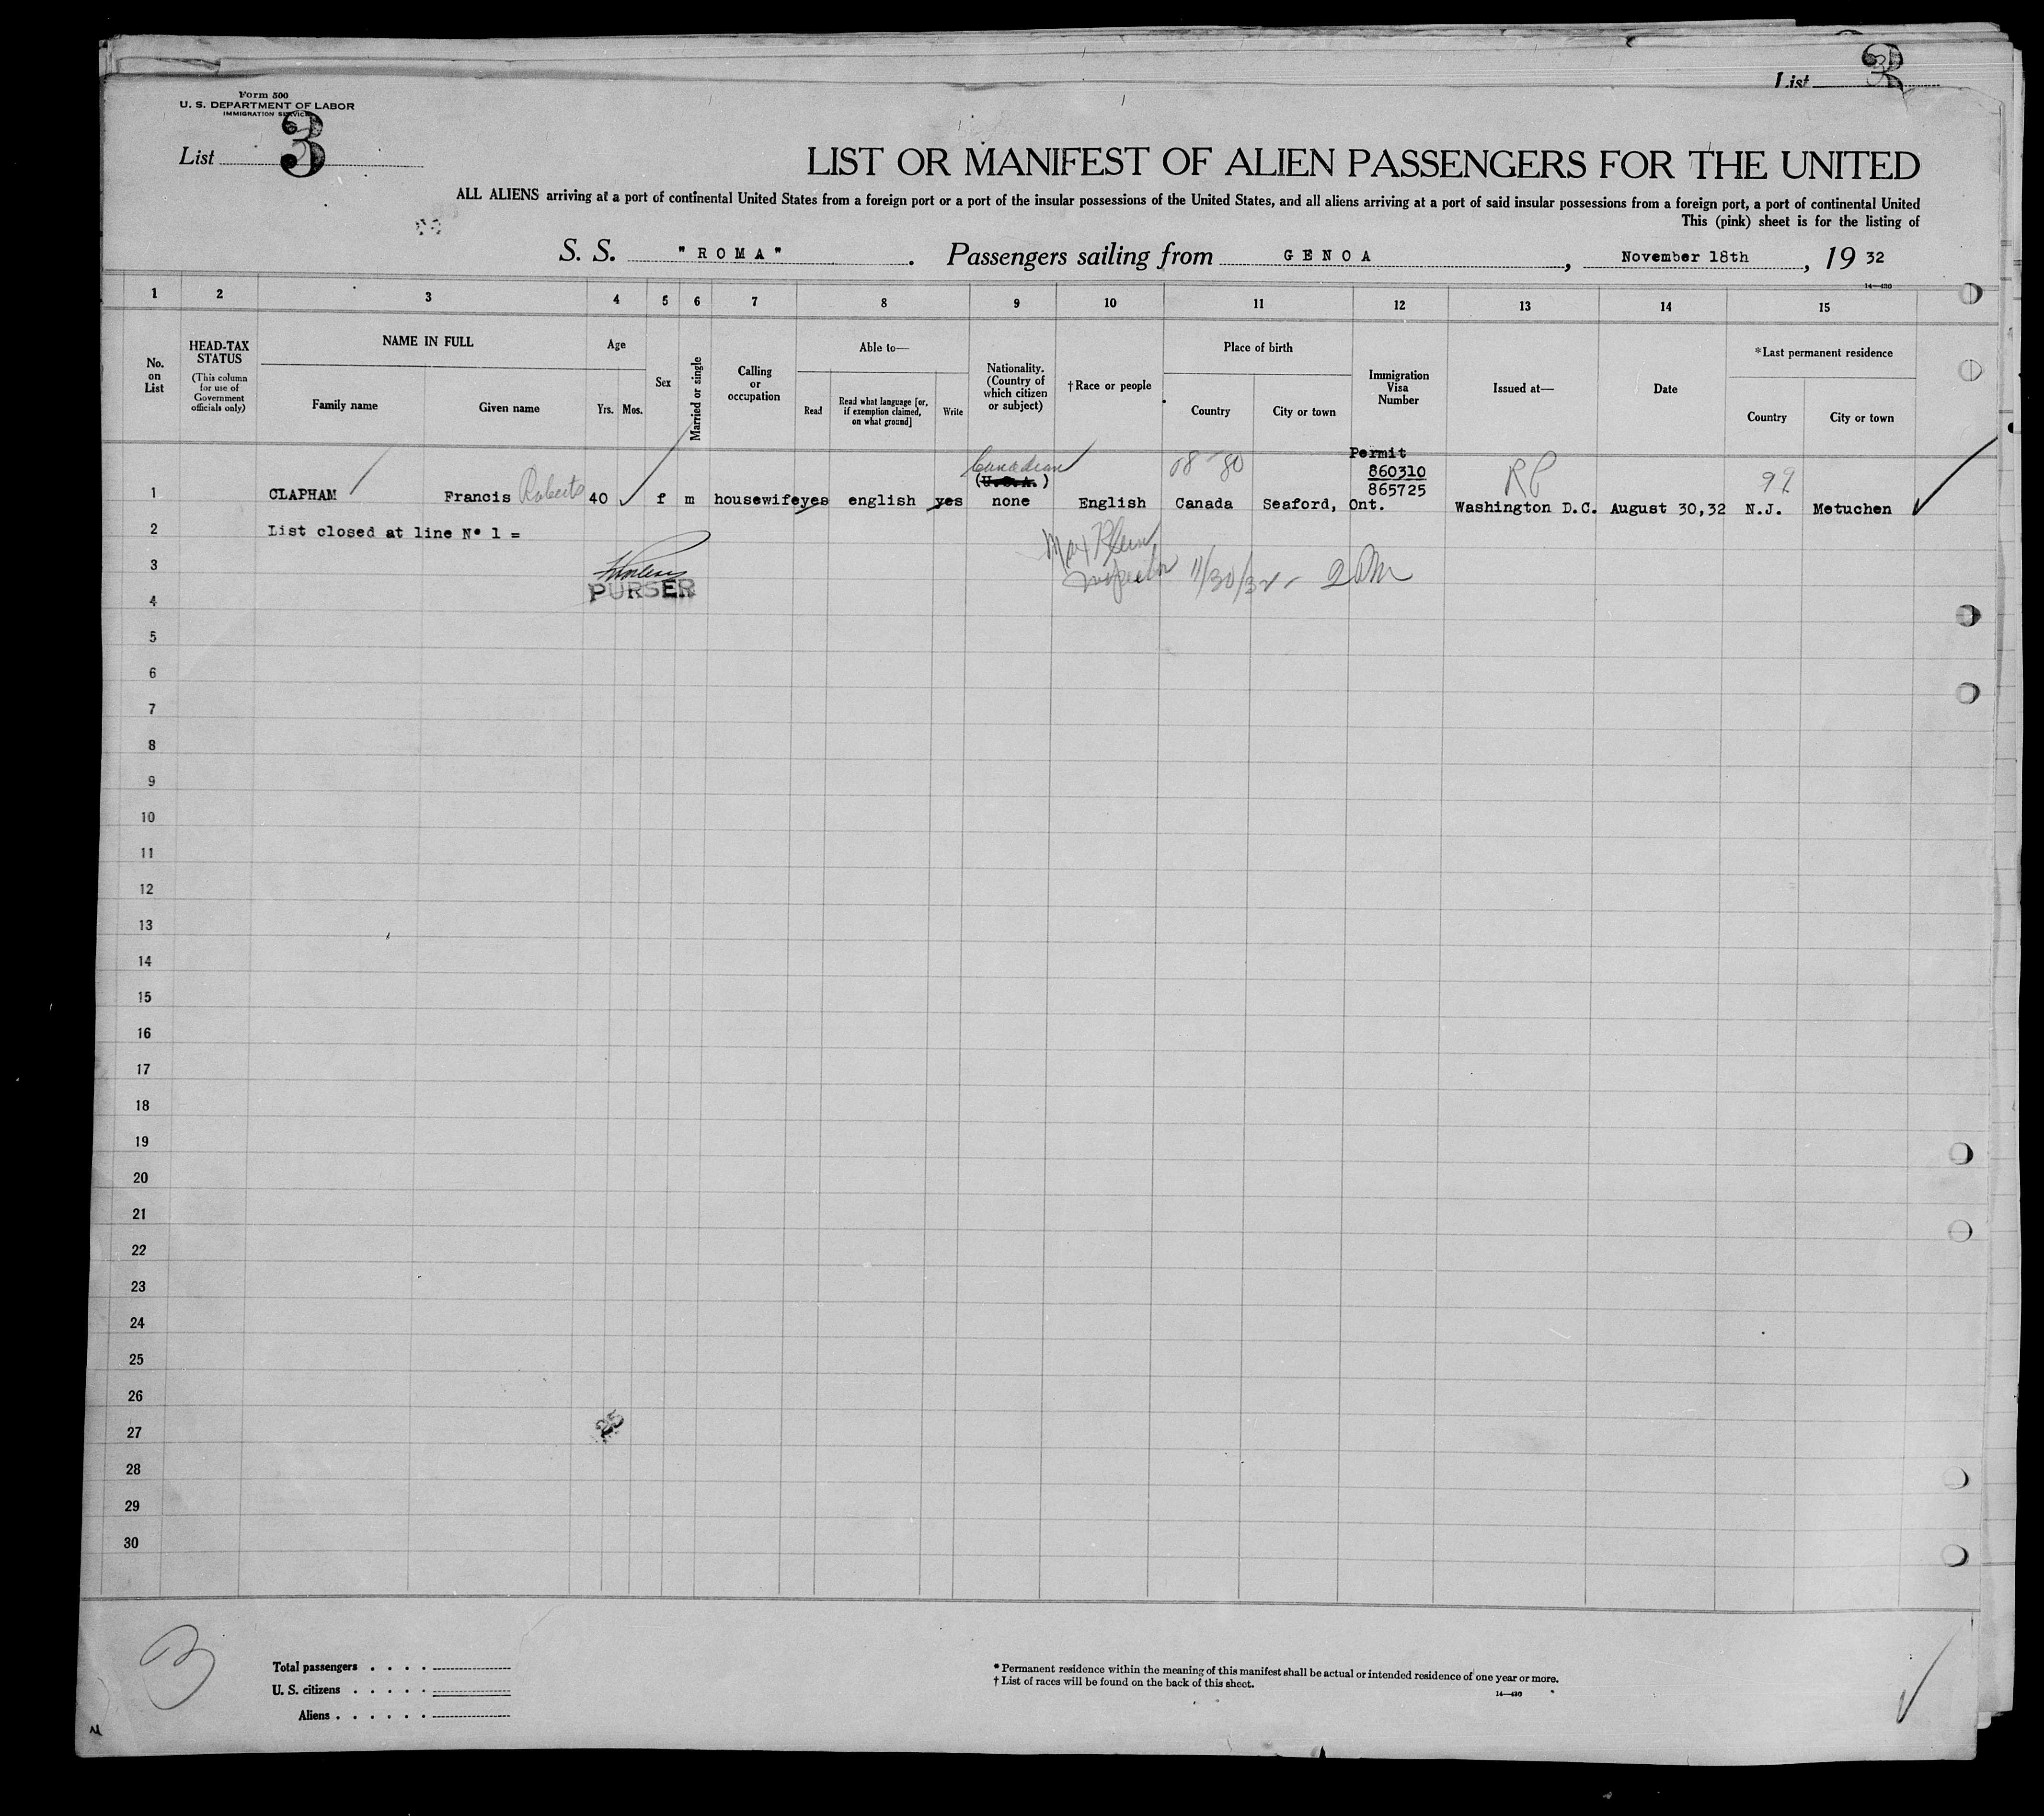 List 3
Form 500
U. S. DEPARTMENT OF LABOR
IMMIGRATION SERVICE
List 3
LIST OR MANIFEST OF ALIEN PASSENGERS FOR THE UNITED
ALL ALIENS arriving at a port of continental United States from a foreign port or a port of the insular possessions of the United States, and all aliens arriving at a port of said insular possessions from a foreign port, a port of continental United
This (pink) sheet is for the listing of
S. S. "ROMA". Passengers sailing from GENOA, November 18th, 19 32
14—430
1 2 3 4 5 6 7 8 9 10 11 12 13 14 15
No. on List
HEAD-TAX STATUS
(This column for use of Government officials only)
NAME IN FULL
Family name
Given name
Age
Yrs. Mos.
Sex
Married or single
Calling or occupation
Able to—
Read
Read what language [or, if exemption claimed, on what ground]
Write
Nationality. (Country of which citizen or subject)
†Race or people
Place of birth
Country
City or town
Immigration Visa Number
Issued at—
Date
*Last permanent residence
Country
City or town
Canadian
08-80
Permit
860310
RP
92
(U.S.A.)
865725
1 CLAPHAM Francis Roberts 40 f m housewife yes english yes none English Canada Seaford, Ont. Washington D.C. August 30,32 N.J. Metuchen
2 List closed at line N° 1 =
Max Klein
Inspector 11/30/32 - 2 PM
3
PURSER
4
5
6
7
8
9
10
11
12
13
14
15
16
17
18
19
20
21
22
23
24
25
26
27
25
28
29
30
3
Total passengers . . . .
U. S. citizens . . . . .
Aliens . . . . . .
* Permanent residence within the meaning of this manifest shall be actual or intended residence of one year or more.
† List of races will be found on the back of this sheet.
14—430